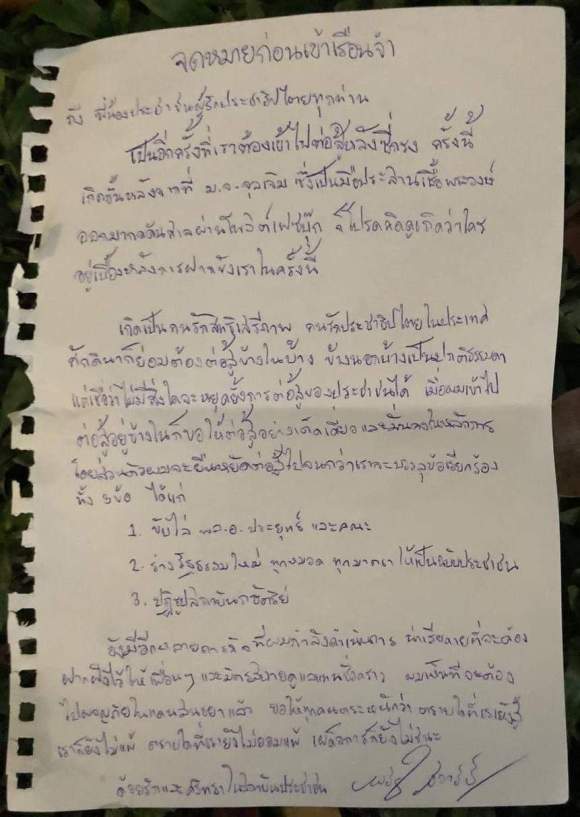 จดหมายก่อนเข้าเรือนจำ
ถึง พี่น้องประชาชนผู้รักประชาธิปไตยทุกท่าน
เป็นอีกครั้งที่เราต้องเข้าไปต่อสู้หลังซี่กรง ครั้งนี้
เกิดขึ้นหลังจากที่ ม.จ.จุลเจิม ซึ่งเป็นมือประสานเชื้อพระวงษ์
ออกมากดดันศาลผ่านโพสต์เฟซบุ๊ก จึงโปรดคิดดูเถิดว่าใคร
อยู่เบื้องหลังการฝากขังเราในครั้งนี้
เกิดเป็นคนรักสิทธิเสรีภาพ คนรักประชาธิปไตยในประเทศ
ศักดินาก็ย่อมต้องต่อสู้ข้างในบ้าง ข้างนอกบ้างเป็นปกติธรรมดา
แต่เชื่อว่าไม่มีสิ่งใดจะหยุดยั้งการต่อสู้ของประชาชนได้ เมื่อผมเข้าไป
ต่อสู้อยู่ข้างในก็ขอให้ต่อสู้อย่างเด็ดเดี่ยวและมั่นคงในหลักการ
โดยส่วนตัวผมจะยืนหยัดต่อสู้ไปจนกว่าเราจะบรรลุข้อเรียกร้อง
ทั้ง ๓ข้อ ได้แก่
1. ขับไล่ พล.อ.ประยุทธ์ และคณะ
2. ร่างรัฐธรรมใหม่ ทุกหมวด ทุกมาตรา ให้เป็นฉบับประชาชน
3. ปฏิรูปสถาบันกษัตริย์
ยังมีอีกหลายภารกิจที่ผมกำลังดำเนินการ น่าเสียดายที่จะต้อง
ฝากฝังไว้ให้เพื่อนๆ และมิตรสหายดูแลแทนชั่วคราว ผมเห็นทีจะต้อง
ไปผจญภัยในแดนสนธยาแล้ว ขอให้ทุกคนตระหนักว่า ตราบใดที่เรายังสู้
เราก็ยังไม่แพ้ ตราบใดที่เรายังไม่ยอมแพ้ เผด็จการก็ยังไม่ชนะ
ด้วยรักและศรัทธาในสถาบันประชาชน